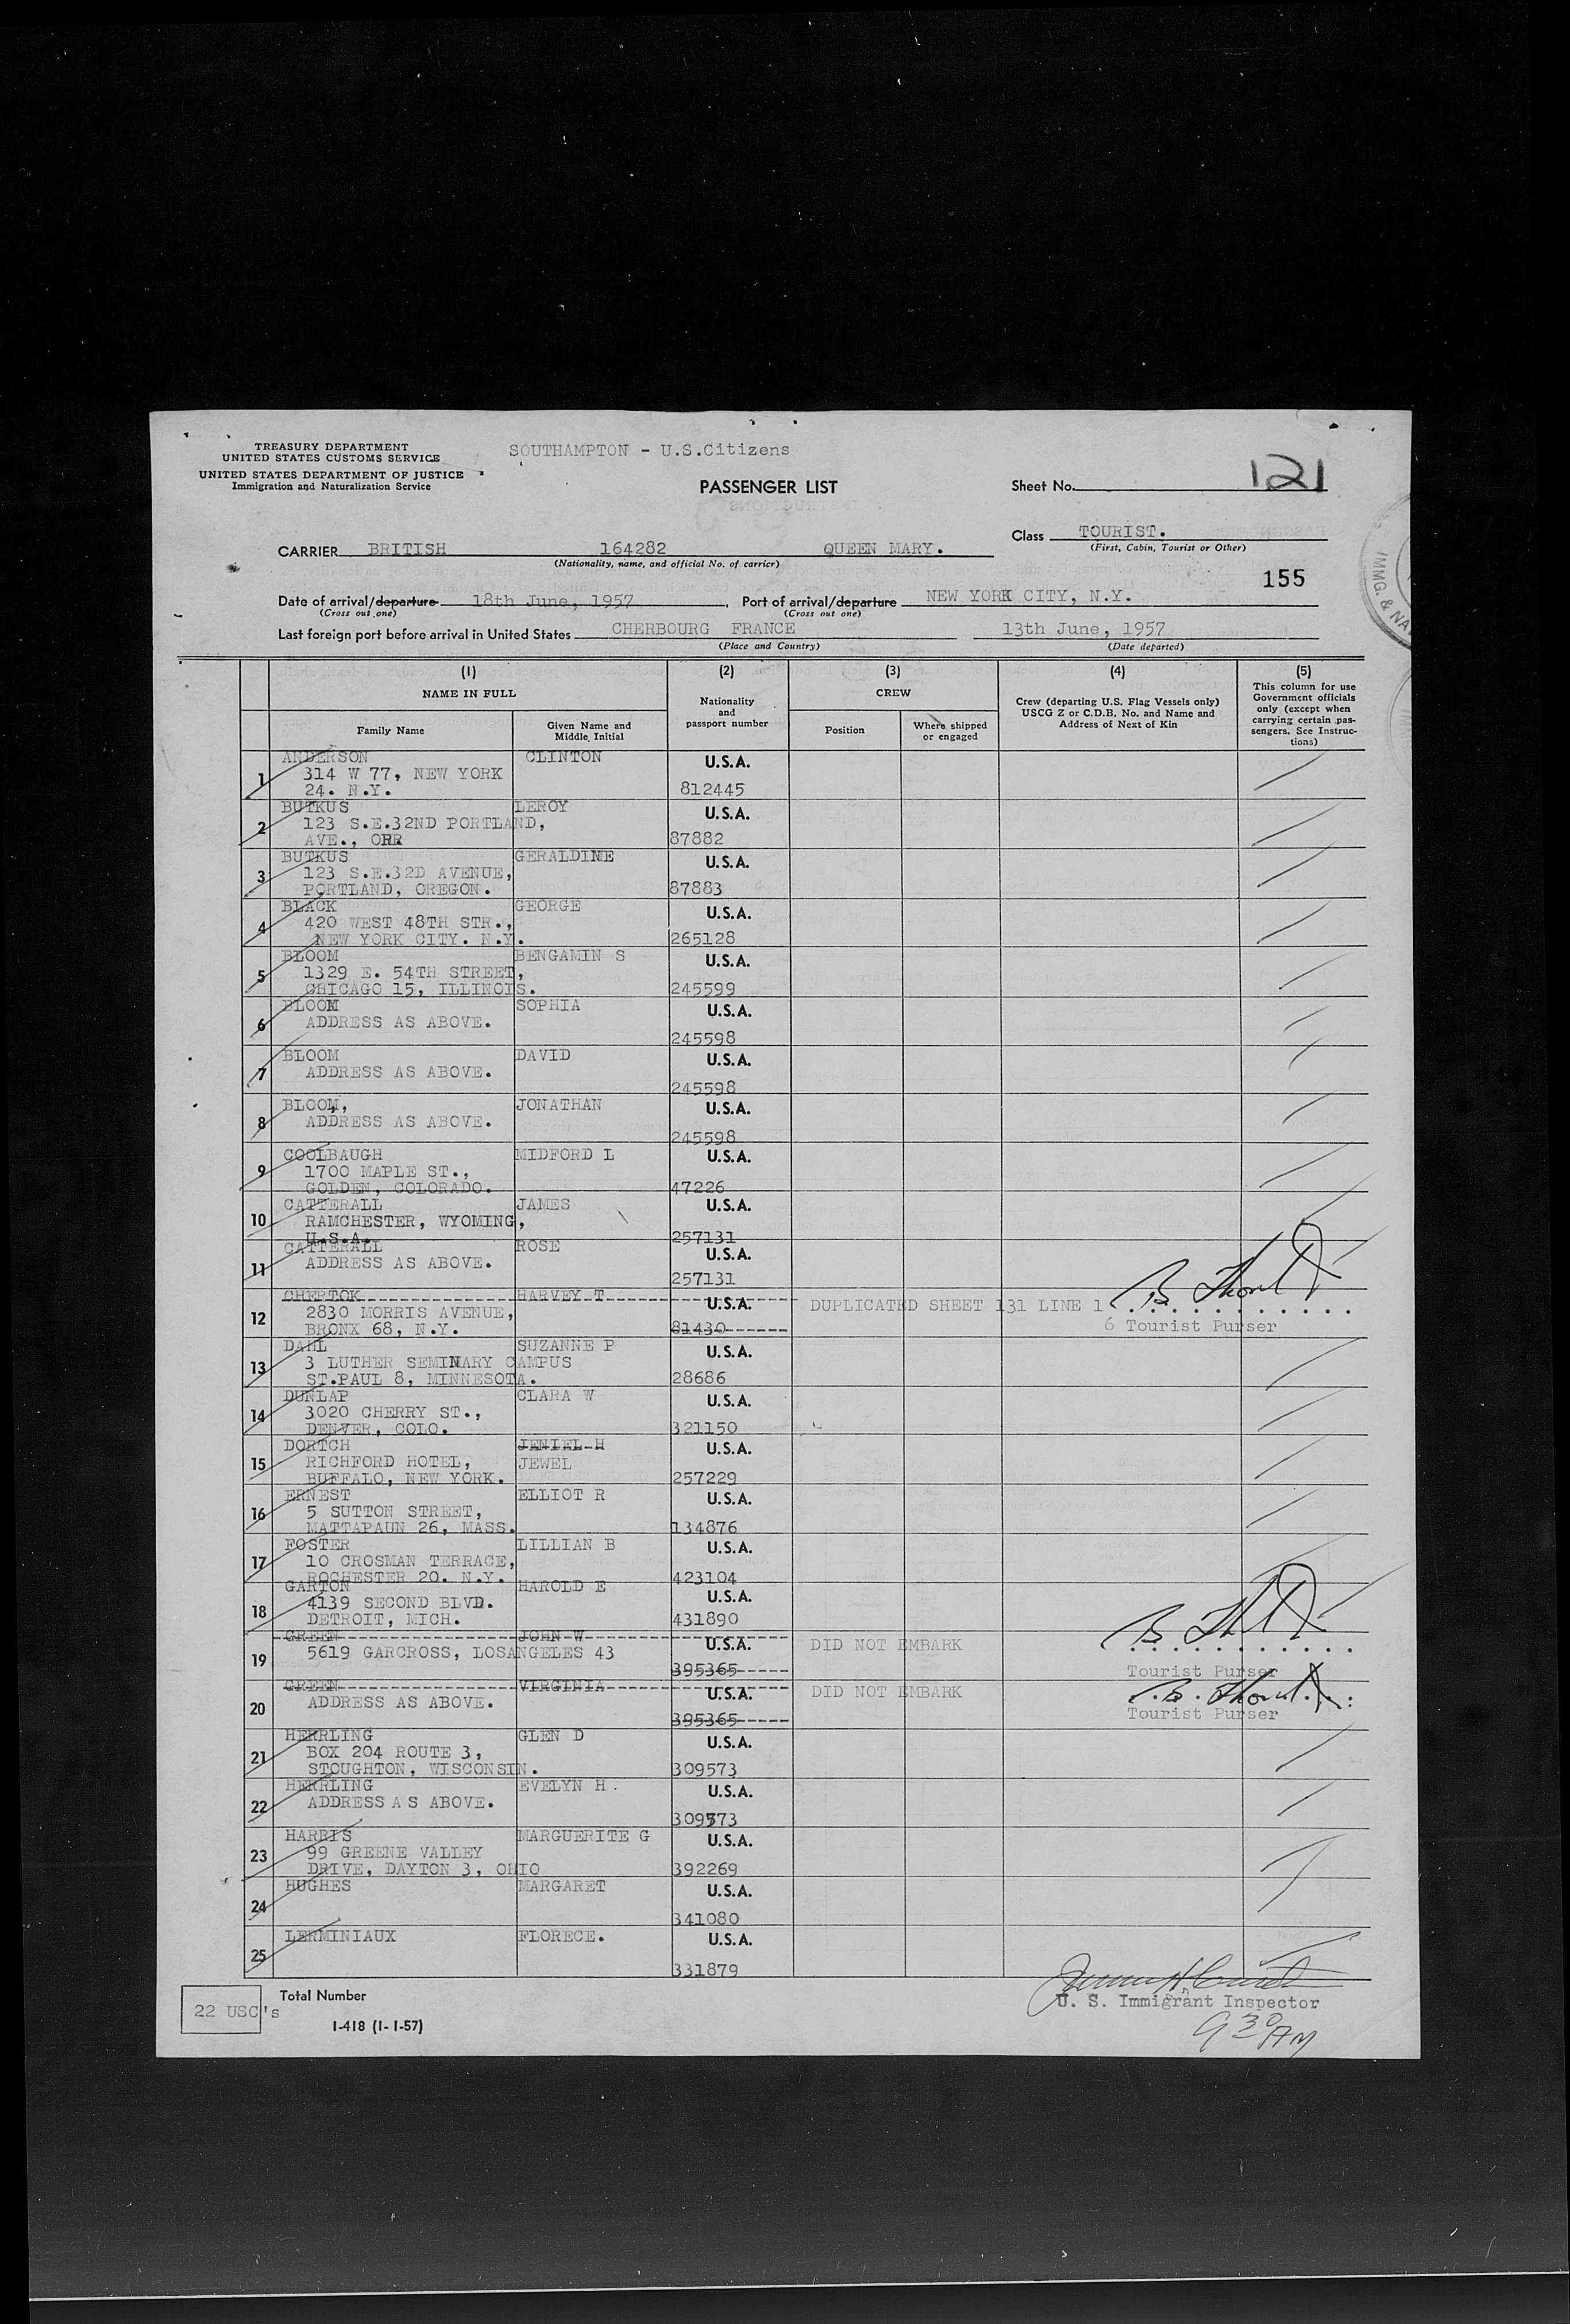 TREASURY DEPARTMENT
UNITED STATES CUSTOMS SERVICE
UNITED STATES DEPARTMENT OF JUSTICE
Immigration and Naturalization Service
SOUTHAMPTON - U.S.Citizens
PASSENGER LIST
Sheet No. 121
Class TOURIST.
(First, Cabin, Tourist or Other)
CARRIER BRITISH 164282 QUEEN MARY.
(Nationality, name, and official No. of carrier)
155
IMMG. & NA
Date of arrival/departure 18th June, 1957, Port of arrival/departure NEW YORK CITY, N.Y.
(Cross out one) (Cross out one)
Last foreign port before arrival in United States CHERBOURG FRANCE 13th June, 1957
(Place and Country) (Date departed)
(1) (2) (3) (4) (5)
NAME IN FULL
Family Name
Given Name and Middle Initial
Nationality and passport number
CREW
Position
Where shipped or engaged
Crew (departing U.S. Flag Vessels only) USCG Z or C.D.B. No. and Name and Address of Next of Kin
This column for use Government officials only (except when carrying certain pas-sengers. See Instruc-tions)
1 ANDERSON CLINTON U.S.A.
314 W 77, NEW YORK
24. N.Y. 812445
2 BUTKUS LEROY U.S.A.
123 S.E.32ND PORTLAND,
AVE., ORR 87882
3 BUTKUS GERALDINE U.S.A.
123 S.E.32D AVENUE,
PORTLAND, OREGON. 87883
4 BLACK GEORGE U.S.A.
420 WEST 48TH STR.,
NEW YORK CITY. N.Y. 265128
5 BLOOM BENGAMIN S U.S.A.
1329 E. 54TH STREET,
CHICAGO 15, ILLINOIS. 245599
6 BLOOM SOPHIA U.S.A.
ADDRESS AS ABOVE.
245598
7 BLOOM DAVID U.S.A.
ADDRESS AS ABOVE.
245598
8 BLOOM, JONATHAN U.S.A.
ADDRESS AS ABOVE.
245598
9 COOLBAUGH MIDFORD L U.S.A.
1700 MAPLE ST.,
GOLDEN, COLORADO. 47226
10 CATTERALL JAMES U.S.A.
RAMCHESTER, WYOMING,
U.S.A. 257131
11 CATTERALL ROSE U.S.A.
ADDRESS AS ABOVE.
257131
12 CHERTOK HARVEY T U.S.A.
2830 MORRIS AVENUE, DUPLICATED SHEET 131 LINE 1
BRONX 68, N.Y. 81430 6 Tourist Purser
13 DAHL SUZANNE P U.S.A.
3 LUTHER SEMINARY CAMPUS
ST.PAUL 8, MINNESOTA. 28686
14 DUNLAP CLARA W U.S.A.
3020 CHERRY ST.,
DENVER, COLO. 321150
15 DORTCH JENIEL H U.S.A.
RICHFORD HOTEL, JEWEL
BUFFALO, NEW YORK. 257229
16 ERNEST ELLIOT R U.S.A.
5 SUTTON STREET,
MATTAPAUN 26, MASS. 134876
17 FOSTER LILLIAN B U.S.A.
10 CROSMAN TERRACE,
ROCHESTER 20. N.Y. 423104
18 GARTON HAROLD E U.S.A.
4139 SECOND BLVD.
DETROIT, MICH. 431890
19 GREEN JOHN W U.S.A. DID NOT EMBARK
5619 GARCROSS, LOSANGELES 43
395365 Tourist Purser
20 GREEN VIRGINIA U.S.A. DID NOT EMBARK
ADDRESS AS ABOVE.
395365 Tourist Purser
21 HERRLING GLEN D U.S.A.
BOX 204 ROUTE 3,
STOUGHTON, WISCONSIN. 309573
22 HERRLING EVELYN H. U.S.A.
ADDRESS A S ABOVE.
309573
23 HARRIS MARGUERITE G U.S.A.
99 GREENE VALLEY
DRIVE, DAYTON 3, OHIO 392269
24 HUGHES MARGARET U.S.A.
341080
25 LERMINIAUX FLORECE. U.S.A.
331879
22 USC's Total Number
I-418 (1-1-57)
U. S. Immigrant Inspector
9 30 AM